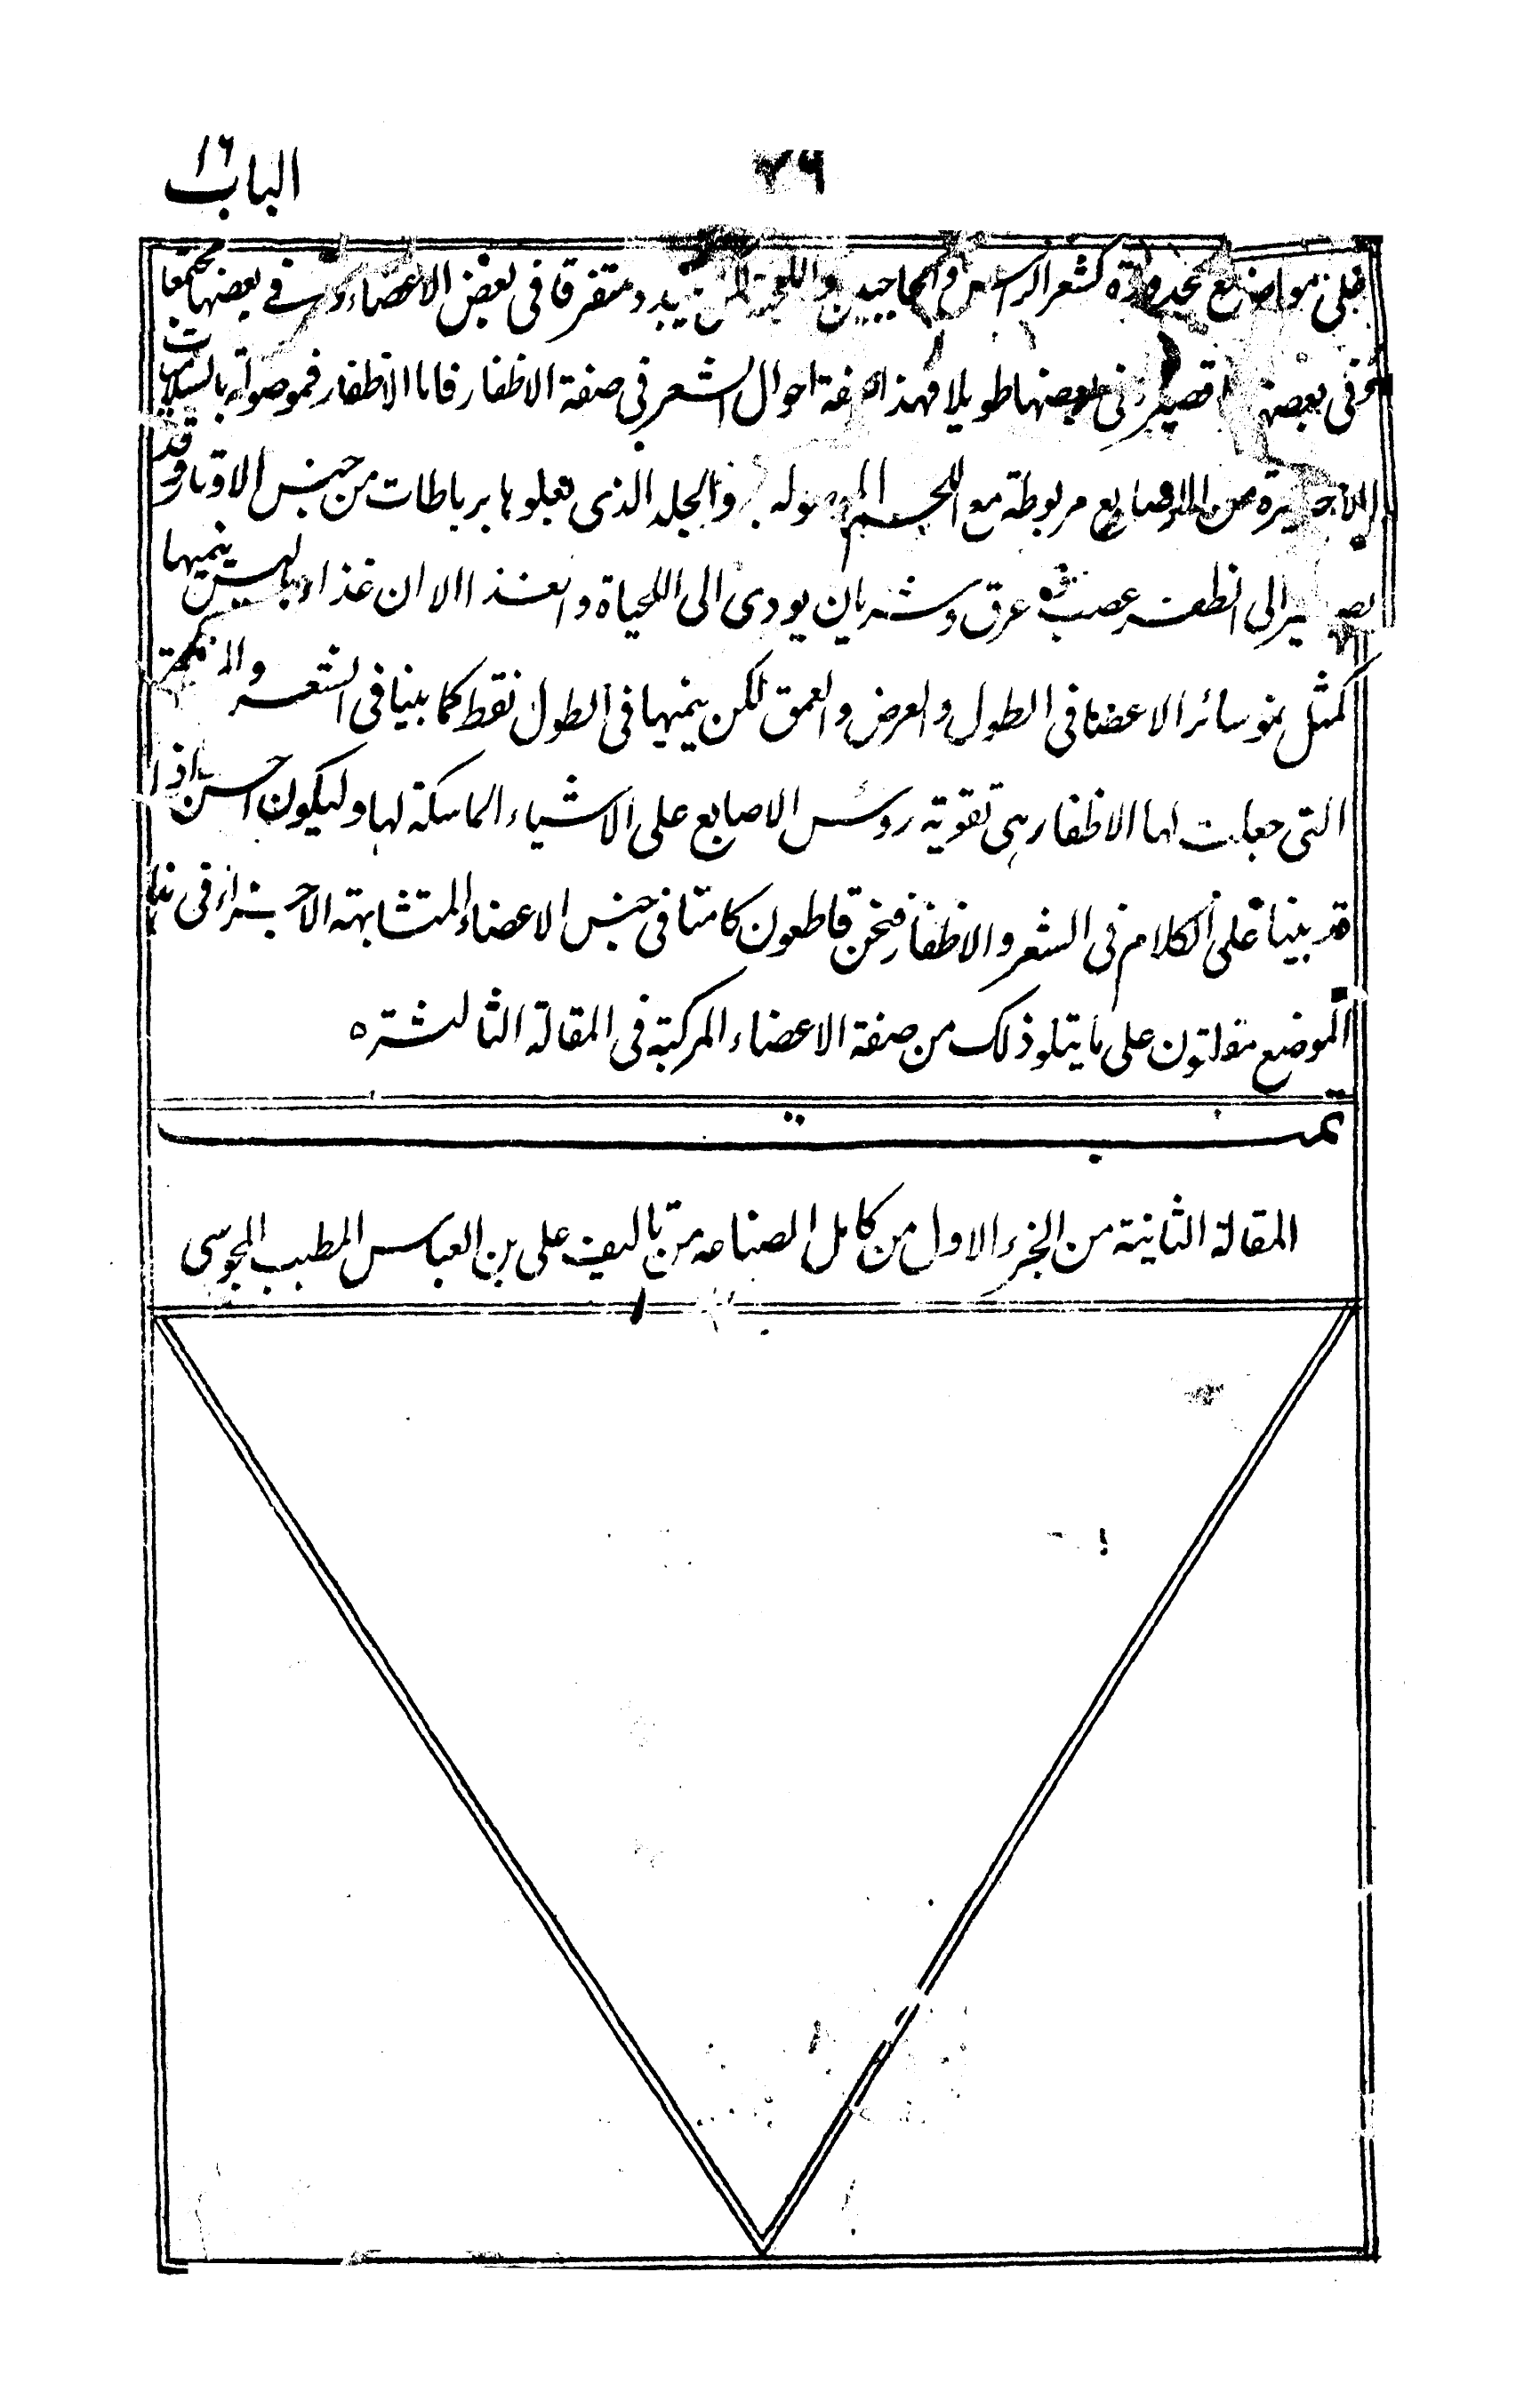 الباب ١٦
٧٦
فلى مواضع محدودة كشعر الراس والحاجبين واللحية يبدو متفرقا فى بعض الاعضاء وفى بعضها مجتمعا
وفى بعضها قصيرا وفى بعضها طويلا فهذا صفة احوال الشعر فى صفة الاظفار فاما الاظفار فموصولة بالسلاميات
الاخيرة من الاصابع مربوطة مع اللحم الموصولة والجلد الذى يعلوها برباطات من جنس الاوتار وقد
يصير الى الظفر عصب وعرق وشريان يودى الى اللحياة والغذا الا ان غذاءها ليس ينميها
كمثل نمو سائر الاعضا فى الطول والعرض والعمق لكن ينميها فى الطول نقط كما بينا فى الشعر والمنفعة
التى جعلت لها الاظفار هى تقوية روس الاصابع على الاشياء الماسكة لها وليكون احسن اذا
قد بينا على الكلام فى الشعر والاظفار فنحن قاطعون كلامنا فى جنس الاعضاء المتشابهة الاجزاء فى هذا
الموضع مقلتون على ما يتلو ذلك من صفة الاعضاء المركبة فى المقالة الثالثة ه
تمت
المقالة الثانية من الجزء الاول من كامل الصناعه من تاليف على بن العباس المطبب المجوسى